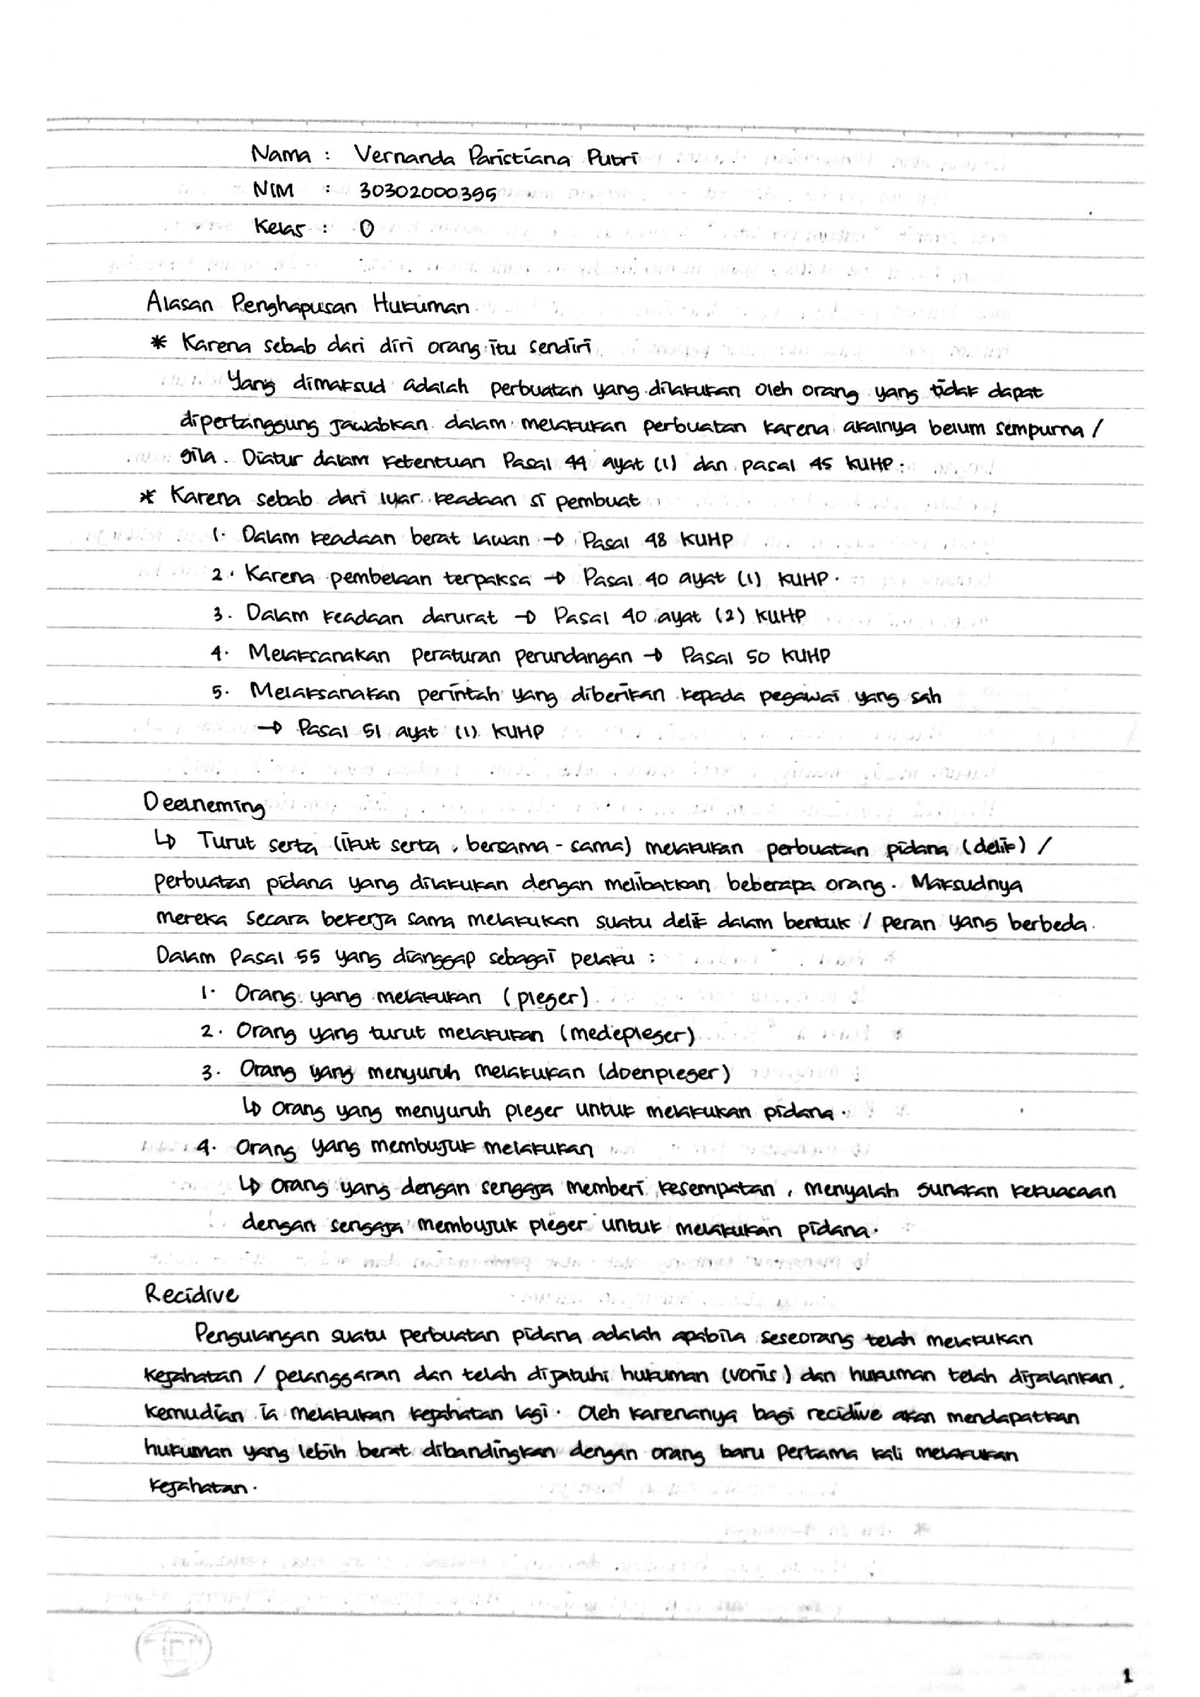 Nama : Vernanda Paristiana Putri
NIM : 30302000395
Kelas : O
Alasan Penghapusan Hukuman
* Karena sebab dari diri orang itu sendiri
Yang dimaksud adalah perbuatan yang dilakukan oleh orang yang tidak dapat
dipertanggung jawabkan dalam melakukan perbuatan karena akalnya belum sempurna /
gila. Diatur dalam ketentuan Pasal 44 ayat (1) dan pasal 45 KUHP.
* Karena sebab dari luar keadaan si pembuat
1. Dalam keadaan berat lawan → Pasal 48 KUHP
2. Karena pembelaan terpaksa → Pasal 40 ayat (1) KUHP.
3. Dalam keadaan darurat → Pasal 40 ayat (2) KUHP
4. Melaksanakan peraturan perundangan → Pasal 50 KUHP
5. Melaksanakan perintah yang diberikan kepada pegawai yang sah
→ Pasal 51 ayat (1) KUHP
Deelneming
↳ Turut serta (ikut serta, bersama-sama) melakukan perbuatan pidana (delik) /
perbuatan pidana yang dilakukan dengan melibatkan beberapa orang. Maksudnya
mereka secara bekerja sama melakukan suatu delik dalam bentuk / peran yang berbeda.
Dalam Pasal 55 yang dianggap sebagai pelaku :
1. Orang yang melakukan (pleger)
2. Orang yang turut melakukan (medepleger)
3. Orang yang menyuruh melakukan (doenpleger)
↳ Orang yang menyuruh pleger untuk melakukan pidana.
4. Orang yang membujuk melakukan
↳ Orang yang dengan sengaja memberi kesempatan, menyalah gunakan kekuasaan
dengan sengaja membujuk pleger untuk melakukan pidana.
Recidive
Pengulangan suatu perbuatan pidana adalah apabila seseorang telah melakukan
kejahatan / pelanggaran dan telah dijatuhi hukuman (vonis) dan hukuman telah dijalankan,
kemudian ia melakukan kejahatan lagi. Oleh karenanya bagi recidive akan mendapatkan
hukuman yang lebih berat dibandingkan dengan orang baru pertama kali melakukan
kejahatan.
1